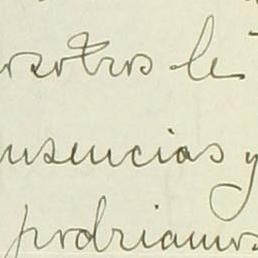 osotros le
ausencias y
podriamos